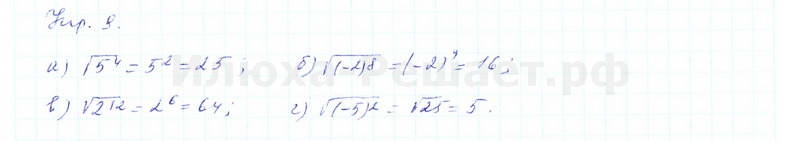 Упр. 9.
а) √5⁴ = 5² = 25; б) √(-2)⁸ = (-2)⁴ = 16;
в) √2¹² = 2⁶ = 64; г) √(-5)² = √25 = 5.
Илюха-Решает.рф